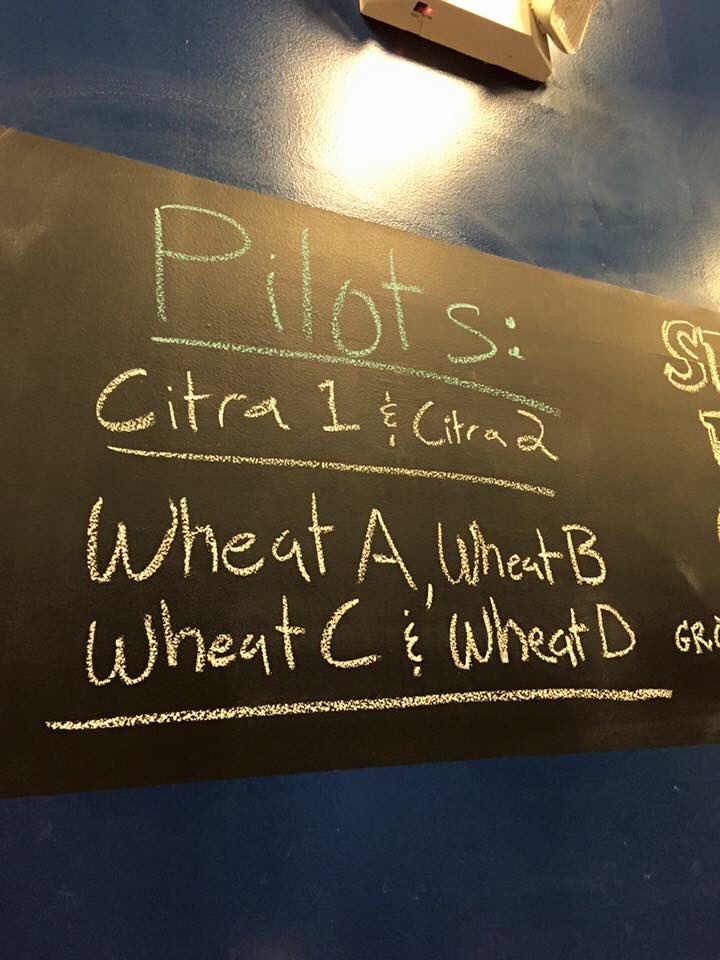 Pilots:
Citra 1 & Citra 2
Wheat A, Wheat B
Wheat C & Wheat D